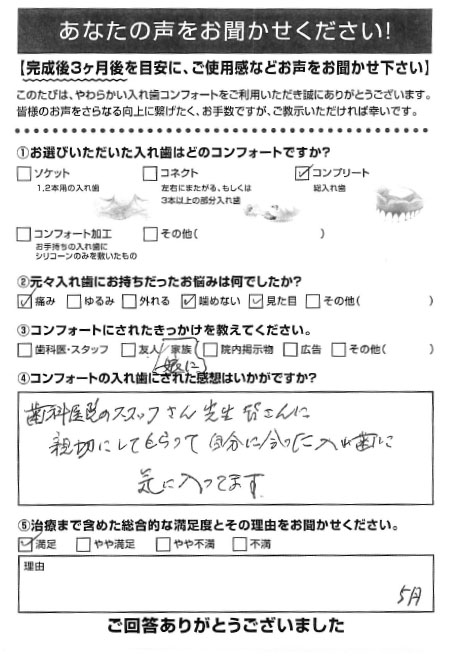 あなたの声をお聞かせください!
【完成後3ヶ月後を目安に、ご使用感などお声をお聞かせ下さい】
このたびは、やわらかい入れ歯コンフォートをご利用いただき誠にありがとうございます。
皆様のお声をさらなる向上に繋げたく、お手数ですが、ご教示いただければ幸いです。
①お選びいただいた入れ歯はどのコンフォートですか?
□ソケット □コネクト ☑コンプリート
1,2本用の入れ歯 左右にまたがる、もしくは 総入れ歯
3本以上の部分入れ歯
□コンフォート加工 □その他( )
お手持ちの入れ歯に
シリコーンのみを敷いたもの
②元々入れ歯にお持ちだったお悩みは何でしたか?
☑痛み □ゆるみ □外れる ☑噛めない ☑見た目 □その他( )
③コンフォートにされたきっかけを教えてください。
□歯科医・スタッフ □友人/家族 □院内掲示物 □広告 □その他( )
④コンフォートの入れ歯にされた感想はいかがですか?
歯科医院のスタッフさん 先生 皆さんに
親切にしてもらって 自分に合った入れ歯に
気に入ってます
⑤治療まで含めた総合的な満足度とその理由をお聞かせください。
☑満足 □やや満足 □やや不満 □不満
理由
5月
ご回答ありがとうございました